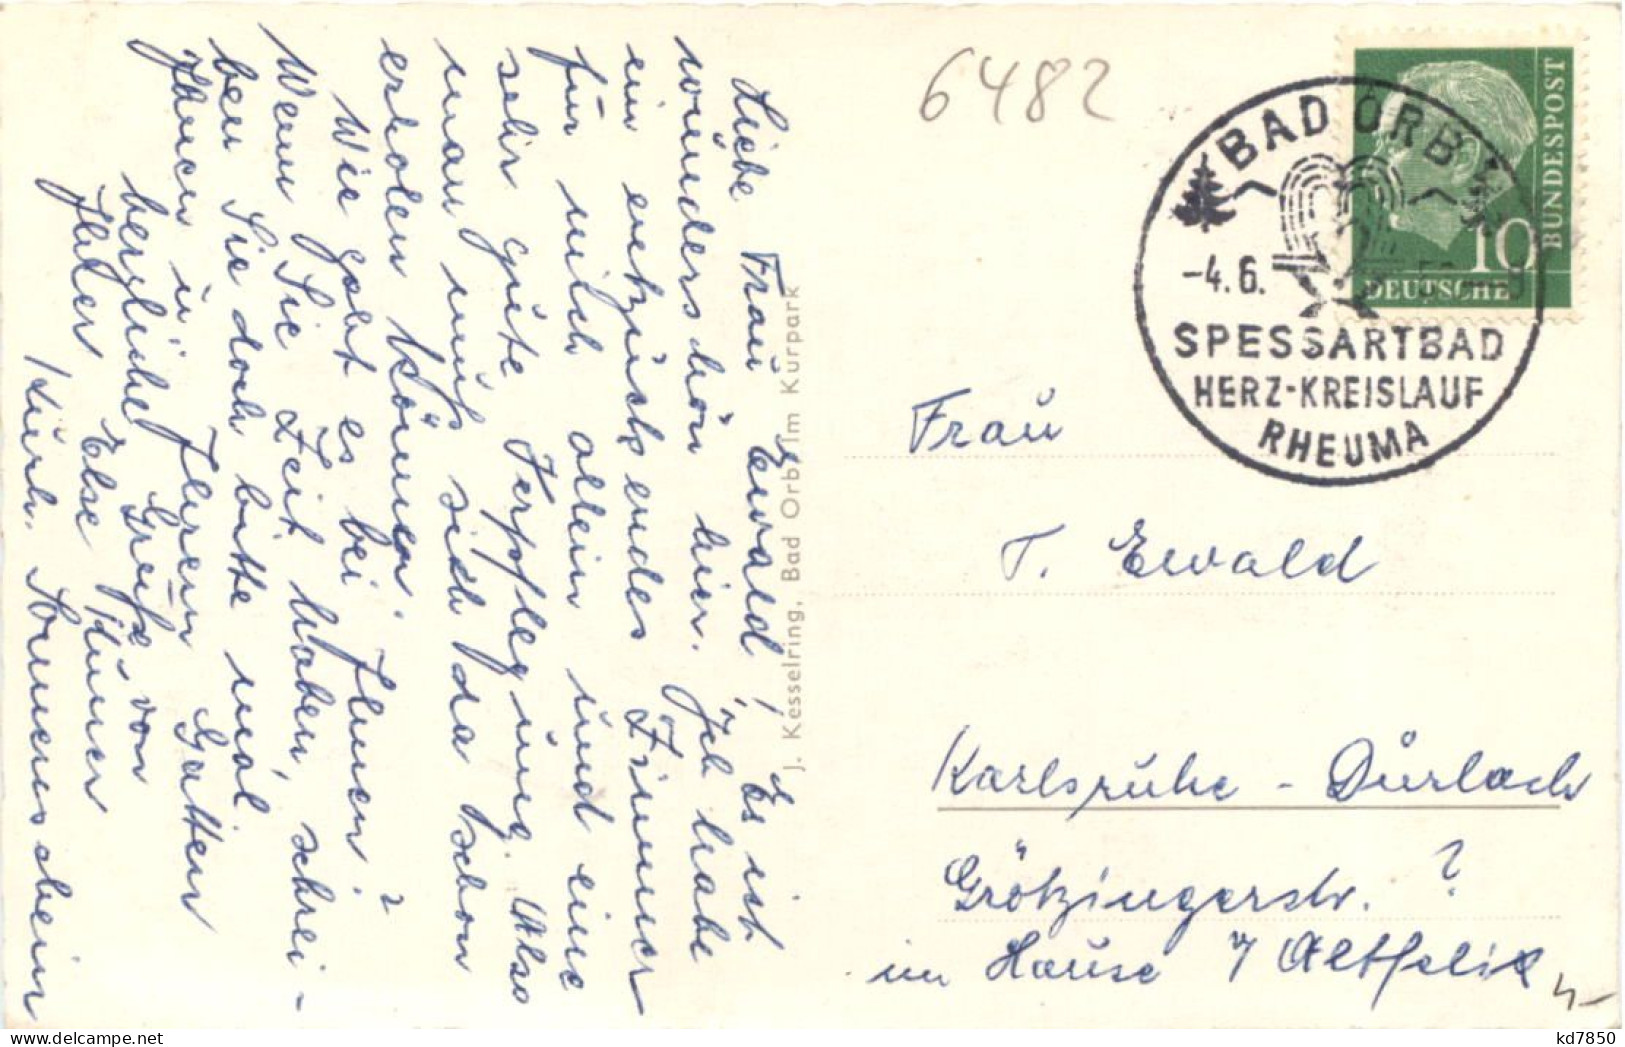 6482
BAD ORB
-4.6.
SPESSARTBAD
HERZ-KREISLAUF
RHEUMA
BUNDESPOST
10
DEUTSCHE
Liebe Frau Ewald! Es ist
wunderschön hier. Ich habe
ein entzückendes Zimmer
für mich allein und eine
sehr gute Verpflegung. Also
man muß sich da schon
erholen können.
Wie geht es bei Ihnen?
Wenn Sie Zeit haben, schrei-
ben Sie doch bitte mal.
Ihnen u Ihrem Gatten
herzliche Grüße von
Ihrer Else
Kurh. Sonnenschein
J. Kesselring, Bad Orb, Im Kurpark
Frau
T. Ewald
Karlsruhe - Durlach
Grötzingerstr. ?
im Hause
kd7850